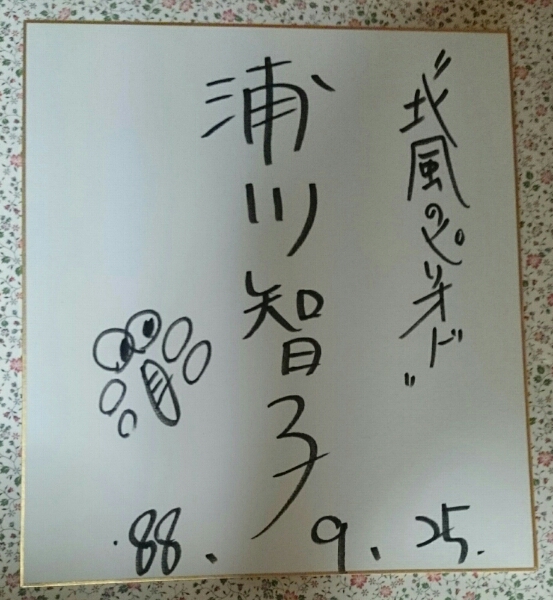 "北風のピリオド"
浦川智子
'88. 9. 25.